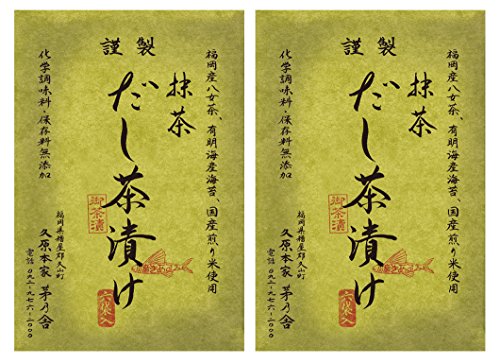 謹製
福岡産八女茶、有明海産海苔、国産煎り米使用
抹茶
だし茶漬け
御茶漬
六袋入
化学調味料・保存料無添加
福岡県糟屋郡久山町
久原本家 茅乃舎
電話 〇九二・九七六・二〇〇〇
謹製
福岡産八女茶、有明海産海苔、国産煎り米使用
抹茶
だし茶漬け
御茶漬
六袋入
化学調味料・保存料無添加
福岡県糟屋郡久山町
久原本家 茅乃舎
電話 〇九二・九七六・二〇〇〇